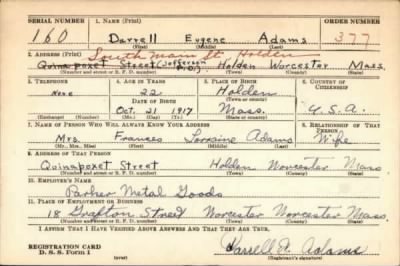 SERIAL NUMBER 1. NAME (Print) ORDER NUMBER
160 Darrell Eugene Adams 377
(First) (Middle) (Last)
2. ADDRESS (Print) South Main St. Holden
Quinapoxet Street (Jefferson P.O.) Holden Worcester Mass.
(Number and street or R. F. D. number) (Town) (County) (State)
3. TELEPHONE 4. AGE IN YEARS 5. PLACE OF BIRTH 6. COUNTRY OF CITIZENSHIP
None 22 Holden
(Town or county)
DATE OF BIRTH
Oct. 21 1917 Mass. U.S.A.
(Exchange) (Number) (Mo.) (Day) (Yr.) (State or country)
7. NAME OF PERSON WHO WILL ALWAYS KNOW YOUR ADDRESS 8. RELATIONSHIP OF THAT PERSON
Mrs. Frances Lorraine Adams Wife
(Mr., Mrs., Miss) (First) (Middle) (Last)
9. ADDRESS OF THAT PERSON
Quinapoxet Street Holden Worcester Mass
(Number and street or R. F. D. number) (Town) (County) (State)
10. EMPLOYER'S NAME
Parker Metal Goods
11. PLACE OF EMPLOYMENT OR BUSINESS
18 Grafton Street Worcester Worcester Mass.
(Number and street or R. F. D. number) (Town) (County) (State)
I AFFIRM THAT I HAVE VERIFIED ABOVE ANSWERS AND THAT THEY ARE TRUE.
REGISTRATION CARD
D. S. S. Form 1 Darrell E. Adams
(over) (Registrant's signature)